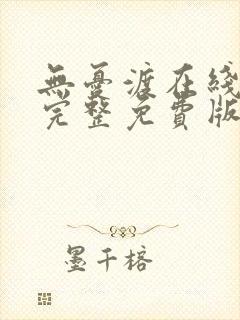 無憂渡在綫
完整免費版
墨千榕